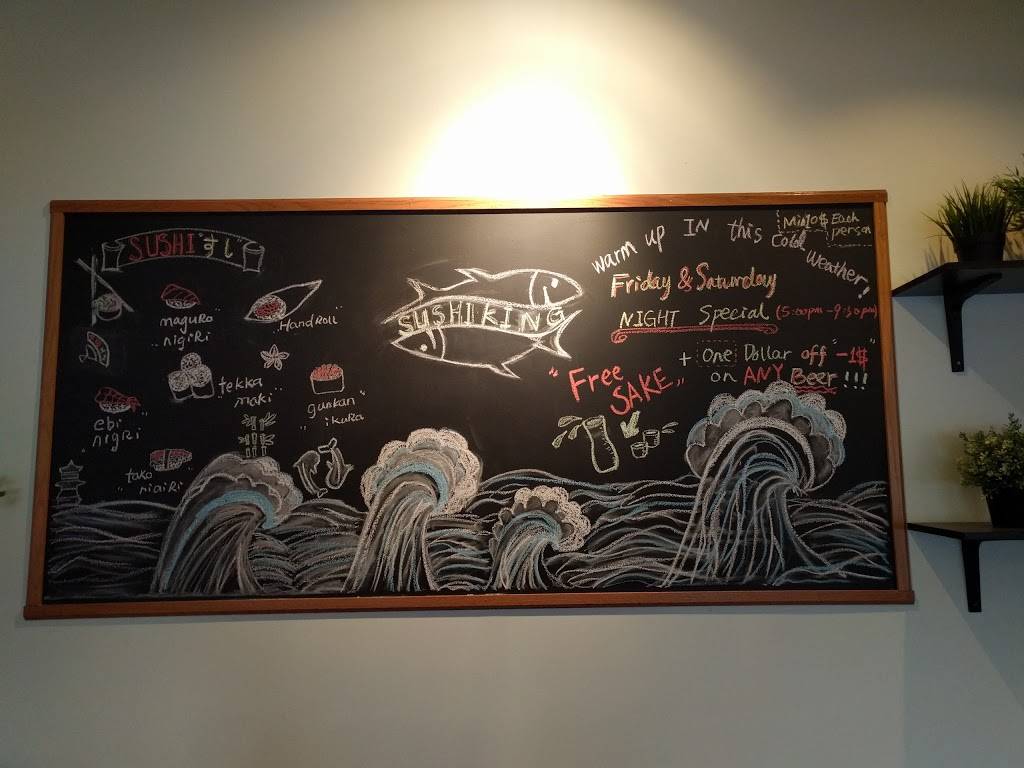 SUSHI "すし"
"maguro nigiri"
"HandRoll"
"tekka maki"
"gunkan ikura"
"ebi nigiri"
"tako nigiri"
SUSHI KING
warm up IN this Cold Weather!
Min10$ Each
person
Friday & Saturday
NIGHT Special (5:00pm-9:30pm)
+ One Dollar off "-1$"
on ANY Beer !!!
"Free
SAKE"